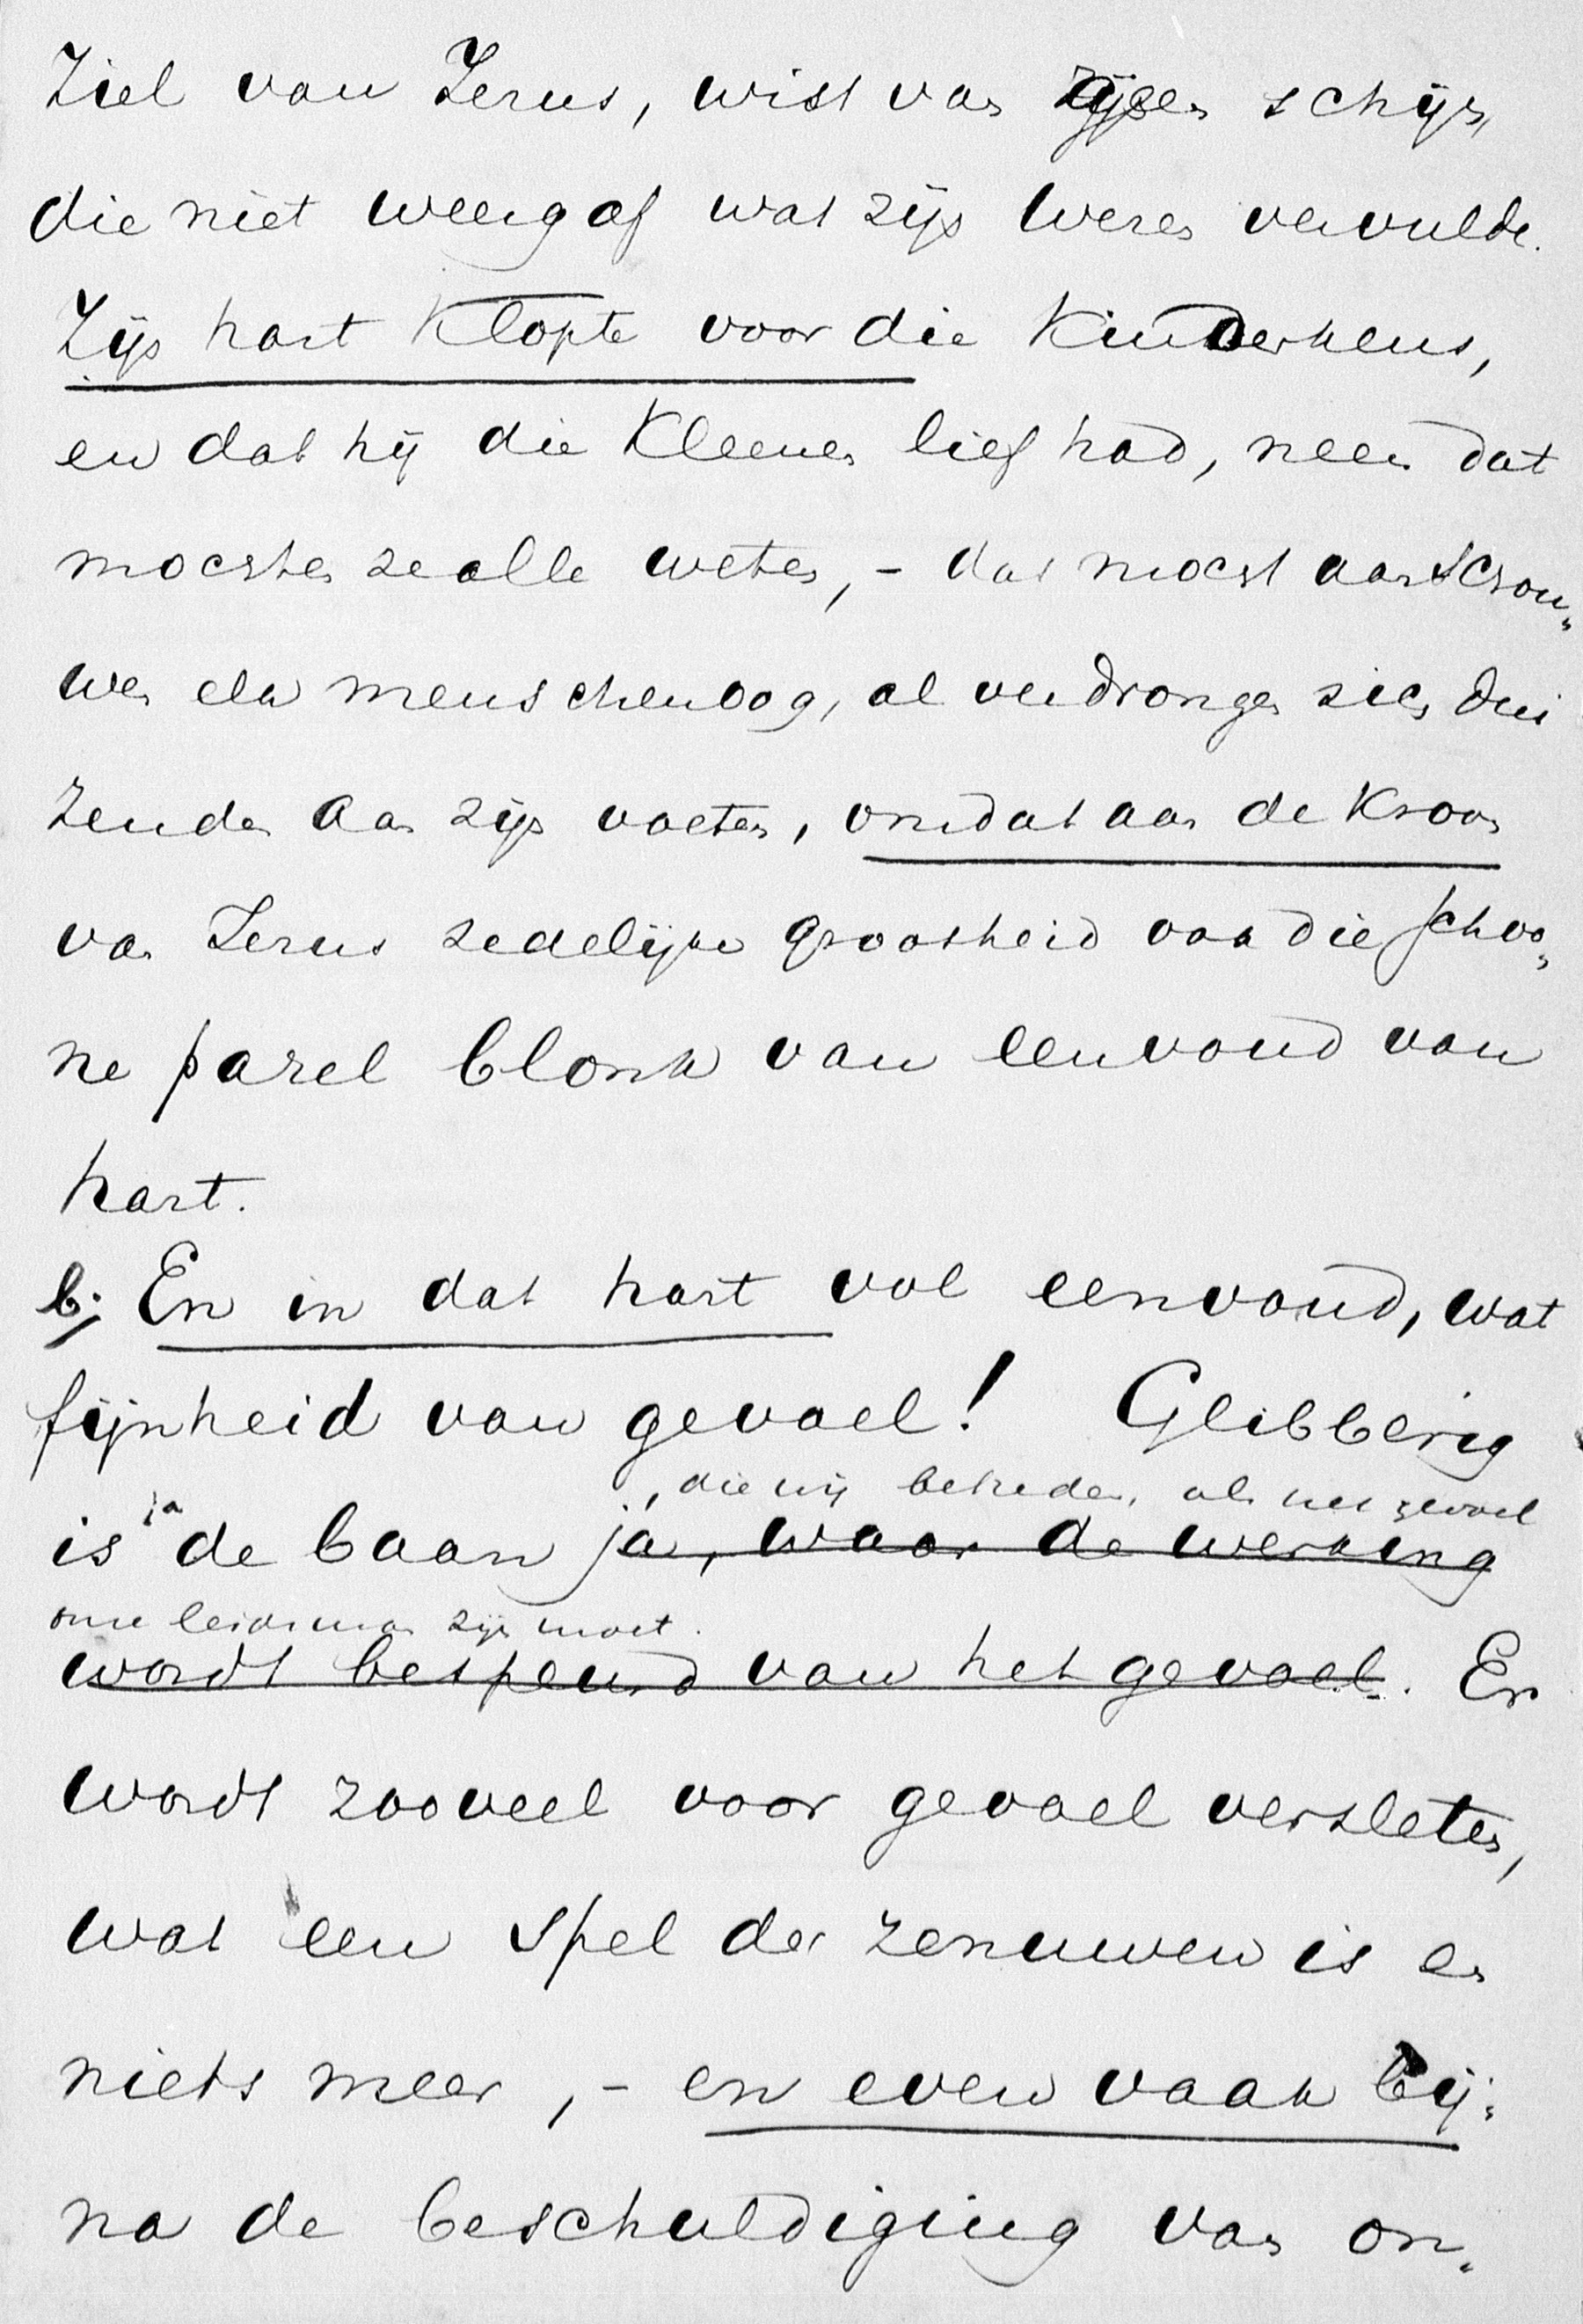 Ziel van Jezus, wist van geen schijn,
die niet weergaf wat zijn wezen vervulde.
Zijn hart klopte voor die kinderkens,
en dat hij die kleenen lief had, neen dat
moesten ze alle weten, – dat moest aanschou„
wen elk menschenoog, al verdrongen zich dui
zenden aan zijn voeten, omdat aan de kroon
van Jezus zedelijke grootheid ook die schoo„
ne parel blonk van eenvoud van
hart.
b; En in dat hart vol eenvoud, wat
fijnheid van gevoel! Glibberig
, die wij betreden, als het gevoel
is ja de baan ja, waar de werking
onze leidsman zijn moet.
wordt bespeurd van het gevoel. Er
wordt zooveel voor gevoel versleten,
wat een spel der zenuwen is en
niets meer, – en even vaak bij„
na de beschuldiging van on„